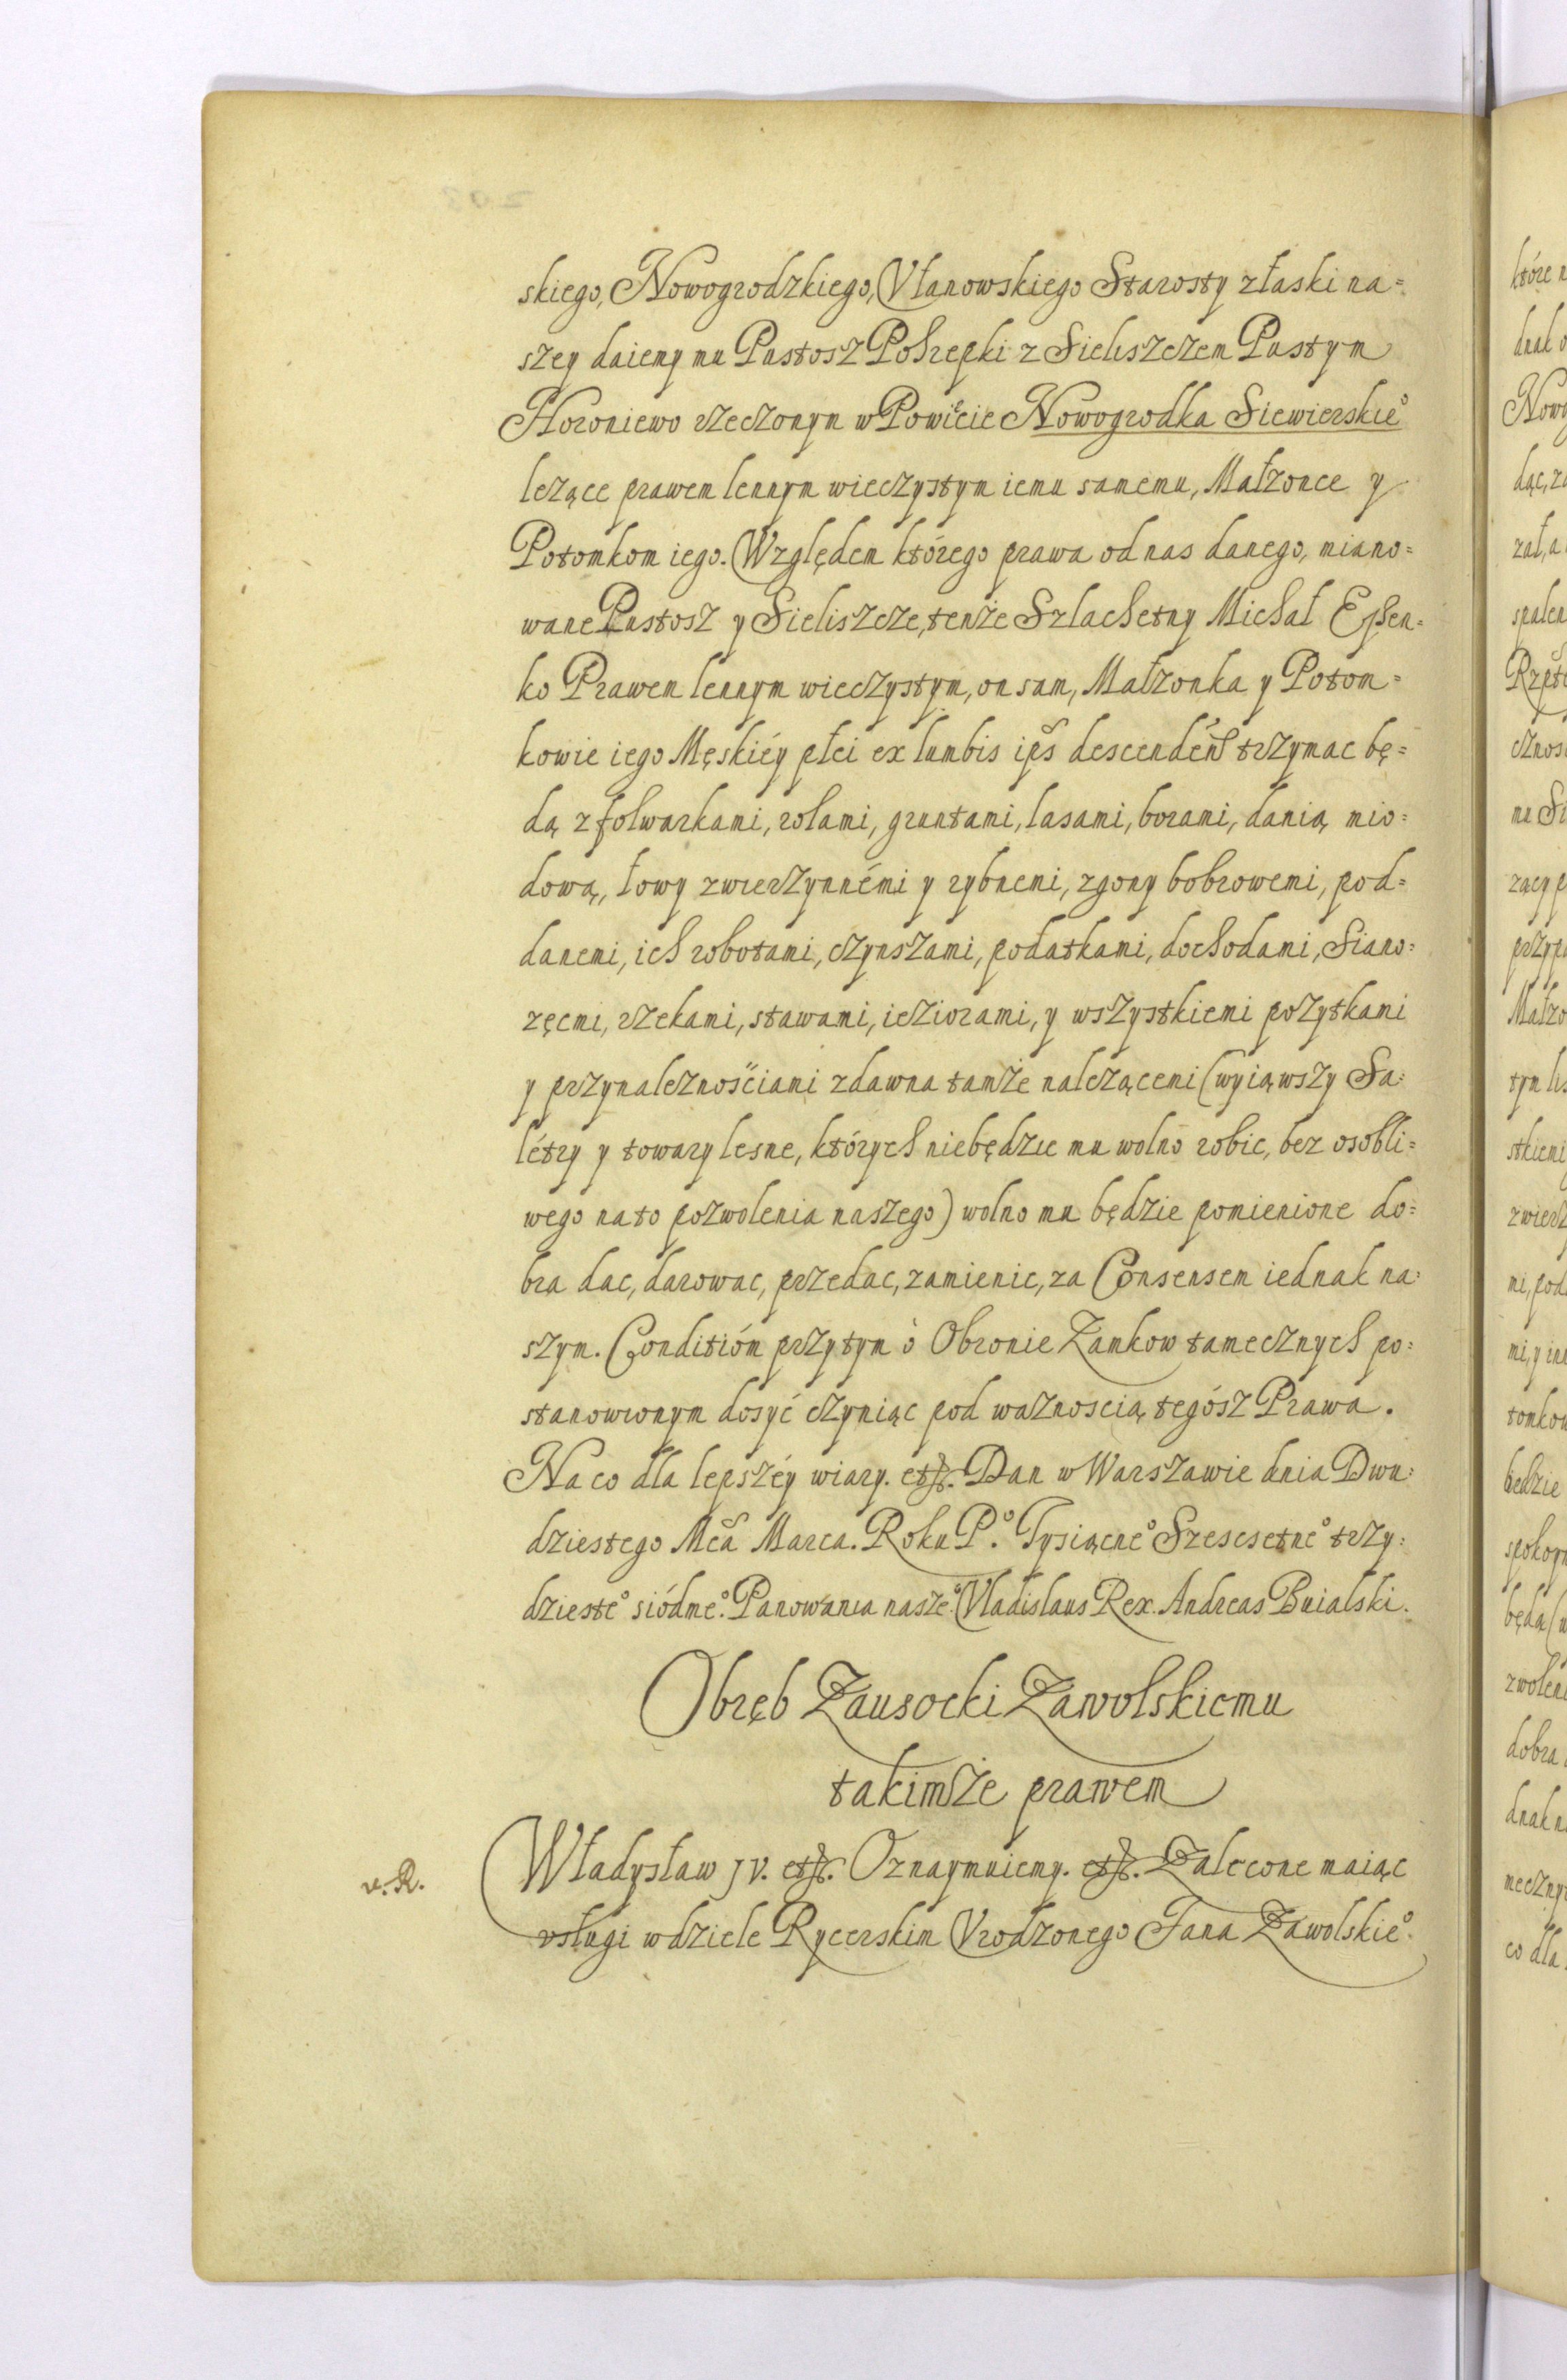 skiego, Nowogrodzkiego, Vłanowskiego Starosty złaski na=
szey daiemy mu Pustosz Pohrepki z Sieliszczem Pustym
Horoniewo rzeczonym w Powiecie Nowogrodka Siewierskie°
leżące prawem lennym wieczystym iemu samemu, Małzonce y
Potomkom iego. Względem którego prawa od nas danego, miano=
wane Pustosz y Sieliszcze, tenże Szlachetny Michał Essen=
ko Prawem lennym wieczystym, on sam, Małzonka y Potom=
kowie iego Męskiéy płci ex lumbis ips descendeń trzymac bę=
dą z folwarkami, rolami, gruntami, lasami, borami, danią mio=
dową, łowy zwierzynnémi y rybnemi, zgony bobrowemi, pod=
danemi, ich robotami, czynszami, podatkami, dochodami, Siano=
zęcmi, rzekami, stawami, ieziorami, y wszystkiemi pozytkami
y przynaleznościami zdawna tamże nalezącemi (wyiąwszy Sa=
létry y towary lesne, których niebędzie mu wolno robic, bez osobli=
wego na to pozwolenia naszego) wolno mu będzie pomienione do=
bra dac, darowac, przedac, zamienic, za Consensem iednak na=
szym. Conditióm przytym ò Obronie Zamkow tamecznych po=
stanowionym dosyć czyniąc pod waznoscią tegósz Prawa.
Na co dla lepszéy wiary. etc. Dan w Warszawie dnia Dwu=
dziestego Mca Marca. Roku P.° Tysiącne° Szescsetne° trzy=
dzieste° siódme°. Panowania nasze°. Vladislaus Rex. Andreas Buialski.
Obręb Zausocki Zawolskiemu
takimże prawem
v. R.
Władysław JV. etc. Oznaymuiemy. etc. Zalecone maiąc
vsługi wdziele Rycerskim Vrodzonego Jana Zawolskie°.